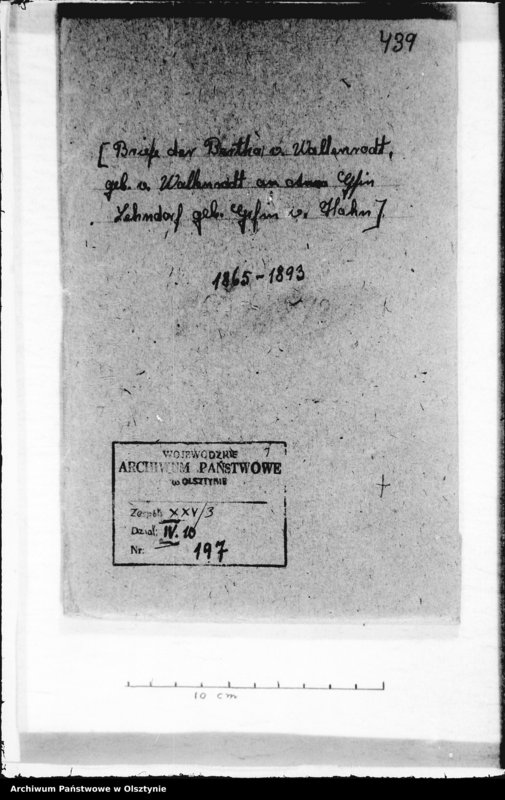 439
[Briefe der Bertha v. Wallenrodt,
geb. v. Wallenrodt an Gfin
Lehndorf geb. Grfin v. Hahn]
1865-1893
WOJEWÓDZKIE
ARCHIWUM PAŃSTWOWE
w OLSZTYNIE
Zespół: XXV/3
Dział: IV. 10
Nr: 197
10 cm
Archiwum Państwowe w Olsztynie